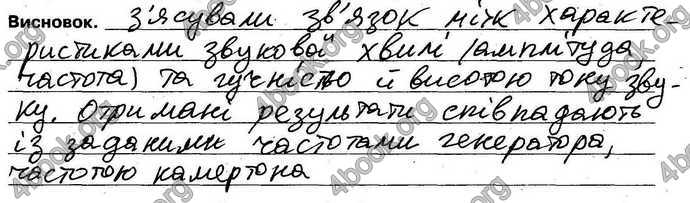 Висновок. з'ясували зв'язок між характе-
ристиками звукової хвилі (амплітуда
частота) та гучністю й висотою тону зву-
ку. Отримані результати співпадають
із заданими частотами генератора,
частотою камертона
4book.org